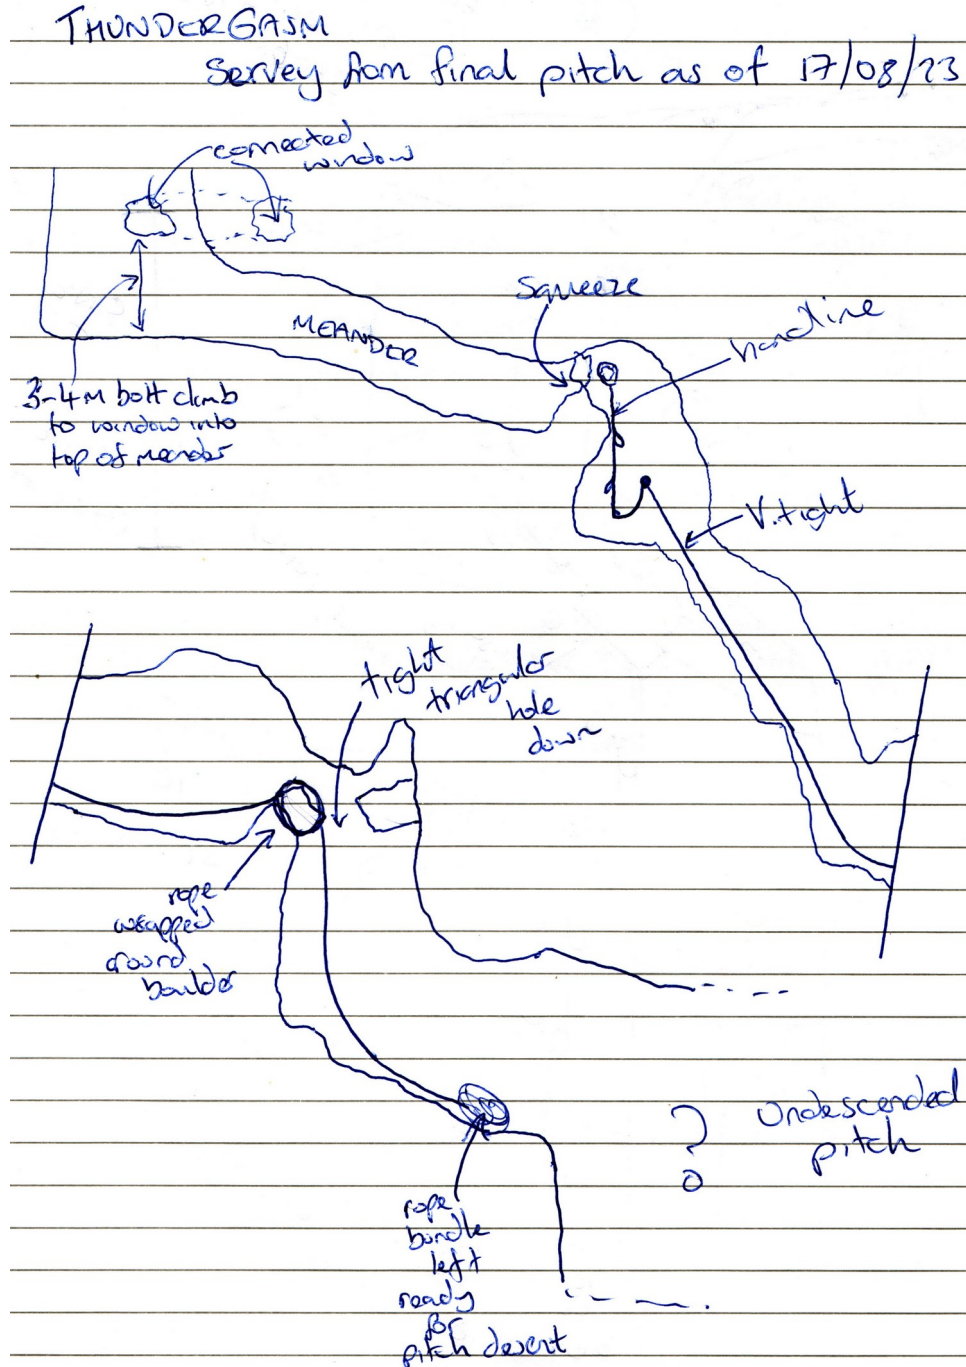 THUNDERGASM
Servey from final pitch as of 17/08/23
connected
window
Squeeze
handline
MEANDER
3-4M bolt climb
to window into
top of meander
V.tight
tight
triangular
hole
down
rope
wrapped
around
boulder
?
Undescended
pitch
rope
bundle
left
ready
for
pitch descent